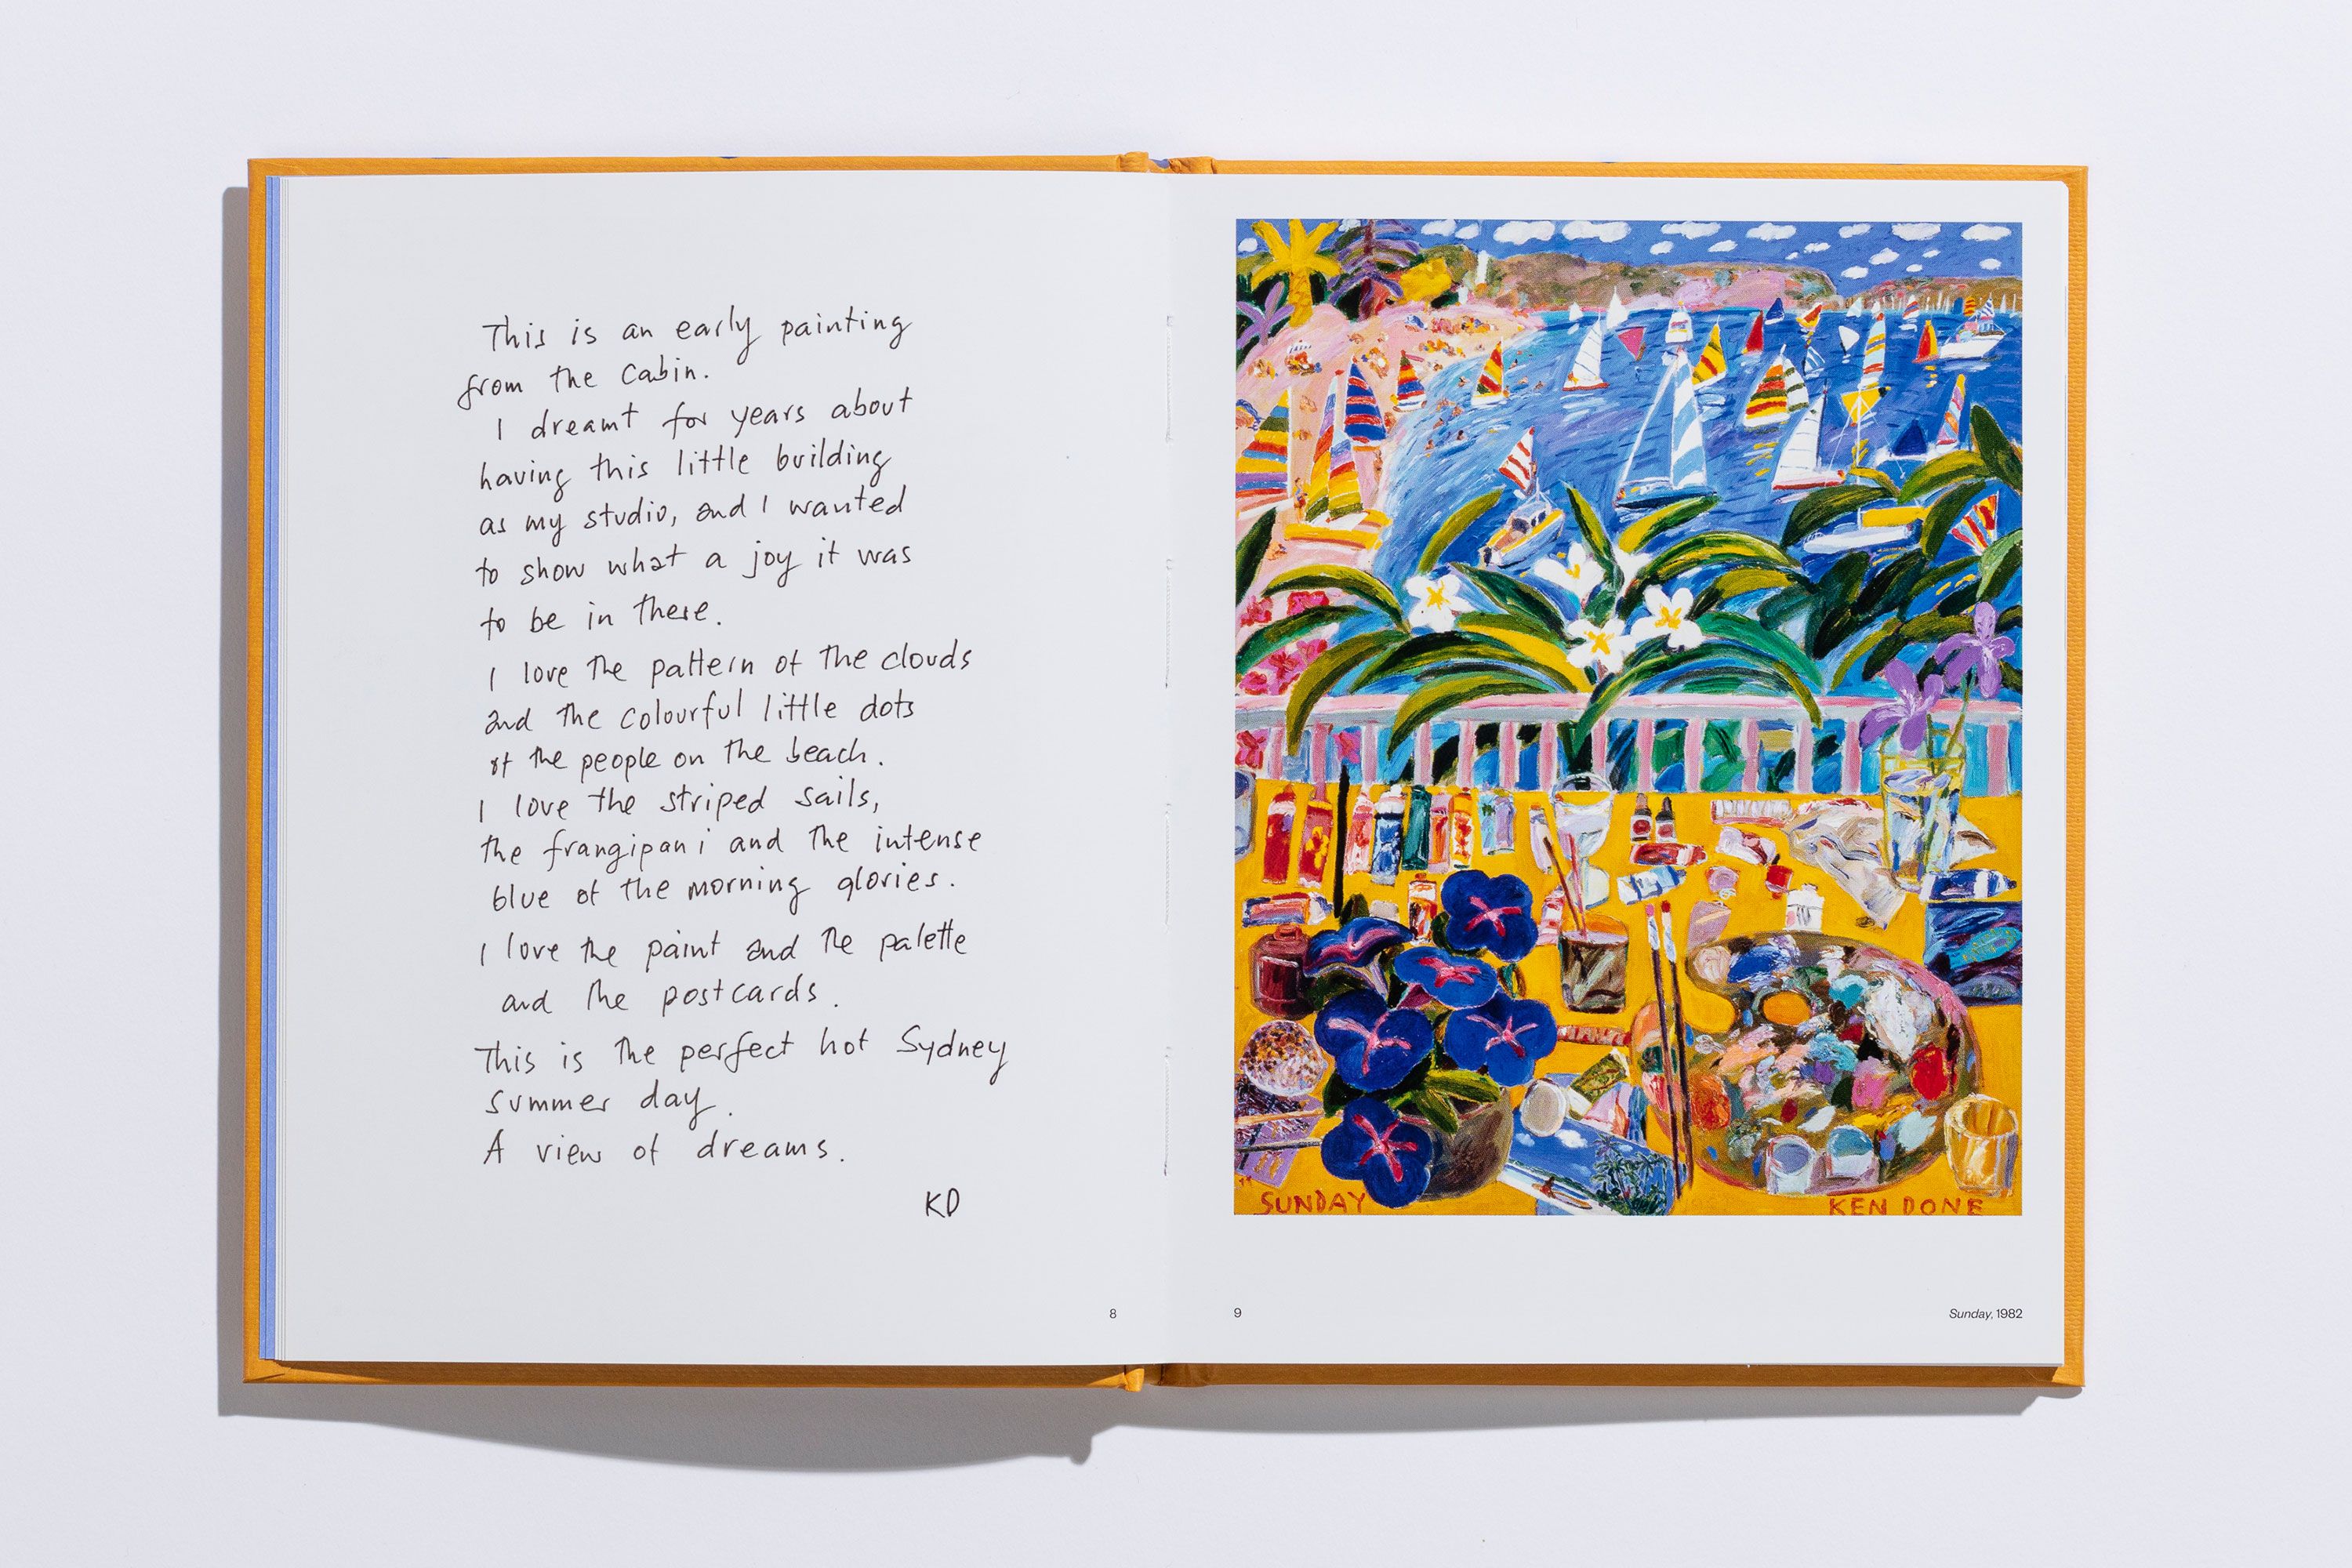 This is an early painting
from the Cabin.
I dreamt for years about
having this little building
as my studio, and I wanted
to show what a joy it was
to be in there.
I love the pattern of the clouds
and the colourful little dots
of the people on the beach.
I love the striped sails,
the frangipani and the intense
blue of the morning glories.
I love the paint and the palette
and the postcards.
This is the perfect hot Sydney
Summer day.
A view of dreams.
KD
8
SUNDAY
KEN DONE
9
Sunday, 1982